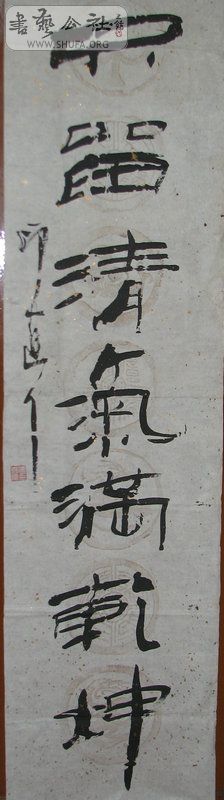 書藝公社
WWW.SHUFA.ORG
只留清氣滿乾坤